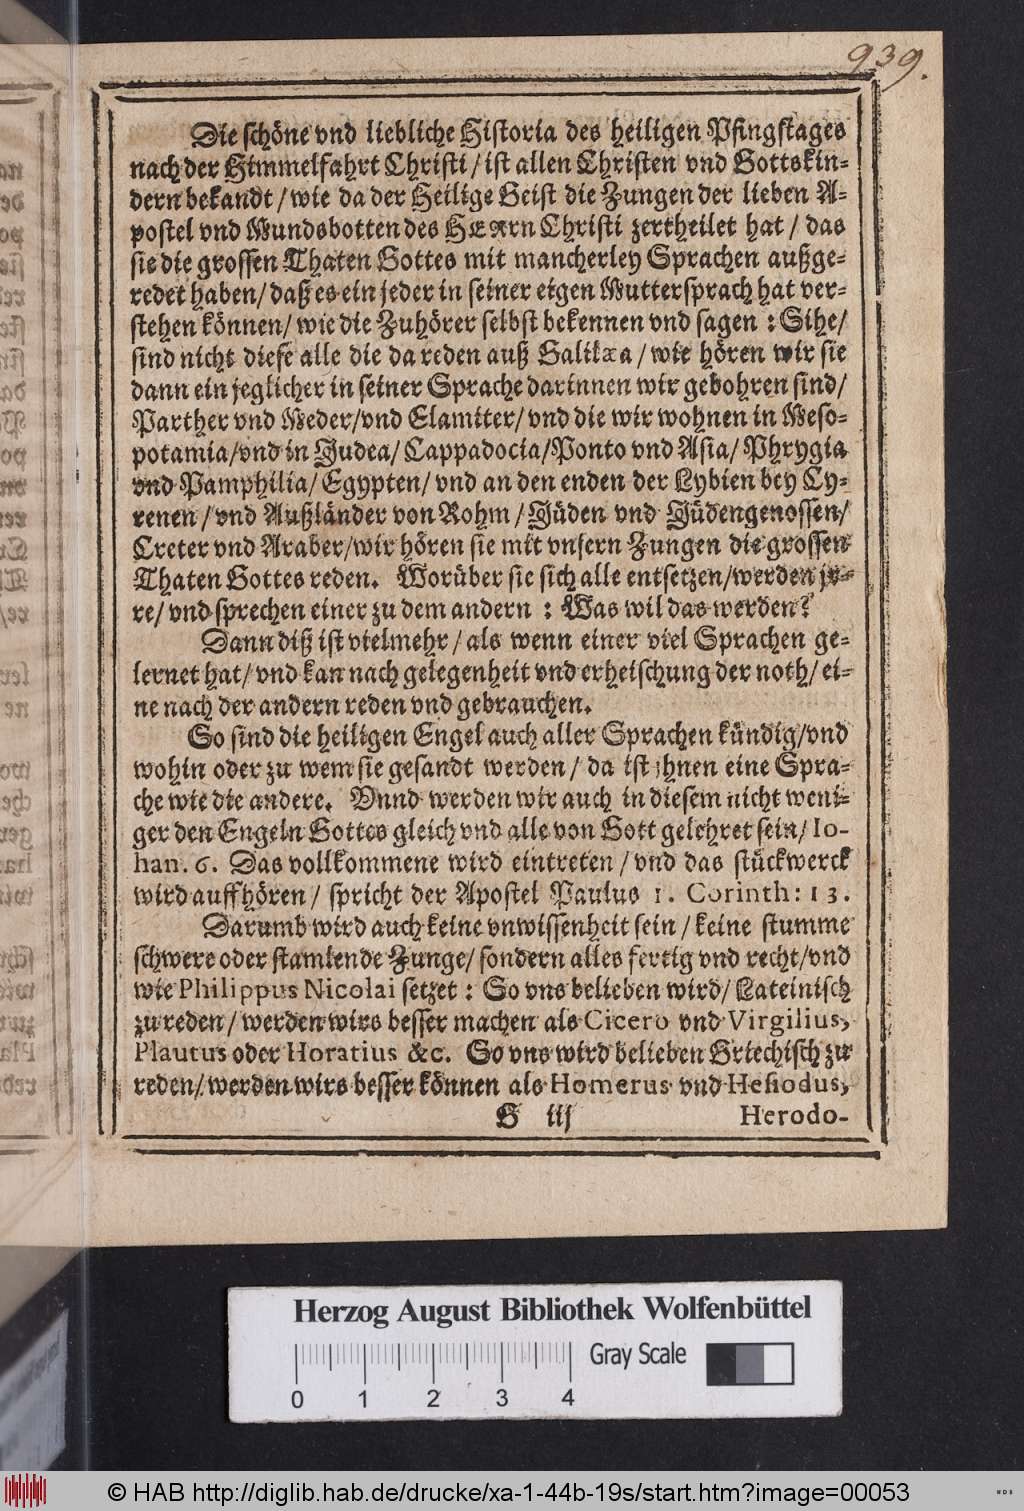 939.
Die schöne vnd liebliche Historia des heiligen Pfingstages
nach der Himmelfahrt Christi / ist allen Christen vnd Gottskin-
dern bekandt / wie da der Heilige Geist die Zungen der lieben A-
postel vnd Mundsbotten des HERRn Christi zertheilet hat / das
sie die grossen Thaten Gottes mit mancherley Sprachen außge-
redet haben / daß es ein jeder in seiner eigen Muttersprach hat ver-
stehen können / wie die Zuhörer selbst bekennen vnd sagen : Sihe /
sind nicht diese alle die da reden auß Galilæa / wie hören wir sie
dann ein jeglicher in seiner Sprache darinnen wir gebohren sind /
Parther vnd Meder / vnd Elamiter / vnd die wir wohnen in Meso-
potamia / vnd in Judea / Cappadocia / Ponto vnd Asia / Phrygia
vnd Pamphilia / Egypten / vnd an den enden der Lybien bey Cy-
renen / vnd Außländer von Rohm / Jüden vnd Jüdengenossen /
Creter vnd Araber / wir hören sie mit vnsern Zungen die grossen
Thaten Gottes reden. Worüber sie sich alle entsetzen / werden jr-
re / vnd sprechen einer zu dem andern : Was wil das werden?
Dann diß ist vielmehr / als wenn einer viel Sprachen ge-
lernet hat / vnd kan nach gelegenheit vnd erheischung der noth / ei-
ne nach der andern reden vnd gebrauchen.
So sind die heiligen Engel auch aller Sprachen kündig / vnd
wohin oder zu wem sie gesandt werden / da ist jhnen eine Spra-
che wie die andere. Vnnd werden wir auch in diesem nicht weni-
ger den Engeln Gottes gleich vnd alle von Gott gelehret sein / Io-
han. 6. Das vollkommene wird eintreten / vnd das stückwerck
wird auffhören / spricht der Apostel Paulus 1. Corinth: 13.
Darumb wird auch keine vnwissenheit sein / keine stumme
schwere oder stamlende Zunge / sondern alles fertig vnd recht / vnd
wie Philippus Nicolai setzet : So vns belieben wird / Lateinisch
zu reden / werden wirs besser machen als Cicero vnd Virgilius,
Plautus oder Horatius &c. So vns wird belieben Griechisch zu
reden / werden wirs besser können als Homerus vnd Hesiodus,
G iij Herodo-
Herzog August Bibliothek Wolfenbüttel
Gray Scale
0 1 2 3 4
© HAB http://diglib.hab.de/drucke/xa-1-44b-19s/start.htm?image=00053